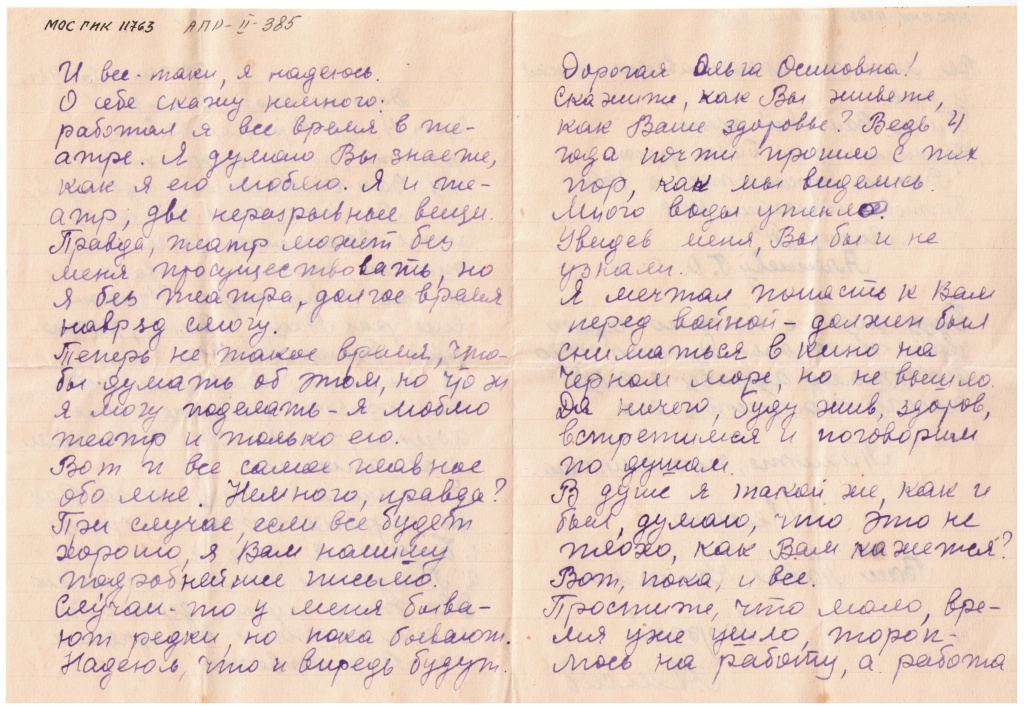 МОС ГИК 11763 АПР-II-385
И все-таки, я надеюсь.
О себе скажу немного:
работал я все время в те-
атре. Я думаю Вы знаете,
как я его люблю. Я и те-
атр, две неразрывные вещи.
Правда, театр может без
меня просуществовать, но
я без театра, долгое время
наврзд смогу.
Теперь не такое время, что-
бы думать об этом, но что ж
я могу поделать - я люблю
театр и только его.
Вот и все самое главное
обо мне. Немного, правда?
При случае, если все будет
хорошо, я Вам напишу
подробнейшее письмо.
Случаи-то у меня быва-
ют редки, но пока бывают.
Надеюсь, что и впредь будут.
Дорогая Ольга Осиповна!
Скажите, как Вы живете,
как Ваше здоровье? Ведь 4
года почти прошло с тих
пор, как мы виделись.
Много воды утекло.
Увидев меня, Вы бы и не
узнали.
Я мечтал попасть к Вам
перед войной - должен был
сниматься в кино на
Черном море, но не вышло.
Да ничего, буду жив, здоров,
встретимся и поговорим
по душам.
В душе я такой же, как и
был, думаю, что это не
плохо, как Вам кажется?
Вот, пока, и все.
Простите, что мало, вре-
мя уже ушло, тороп-
люсь на работу, а работа